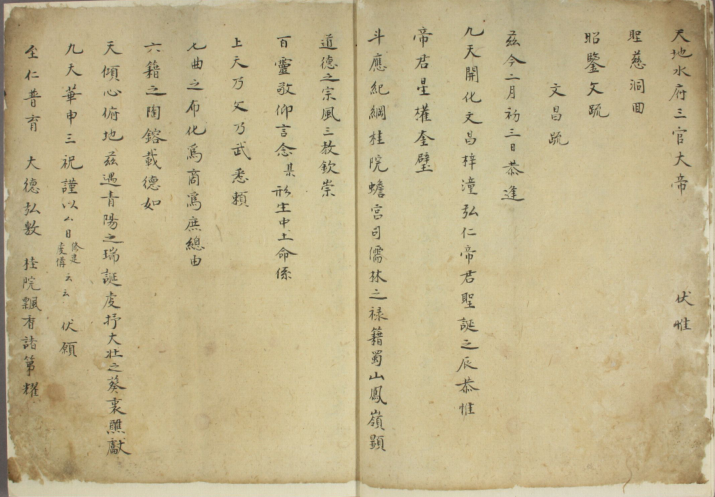 天地水府三官大帝　伏惟
聖慈洞回
昭鑒文疏
文昌疏
茲今二月初三日恭逢
九天開化文昌梓潼弘仁帝君聖誕之辰恭惟
帝君星權奎璧
斗應紀綱桂院蟾宮司儒林之祿籍蜀山鳳嶺顕
道德之宗風三教欽崇
百靈敬仰言念某形生中土命係
上天乃文乃武悉賴
九曲之布化為商為庶總由
六籍之陶鎔載德如
天傾心俯地茲遇青陽之瑞誕虔抒大壯之葵衷庶獻
九天華申三祝謹以厶日修建虔備云云　伏願
至仁普育　大德弘敷　桂院飄香諸第耀